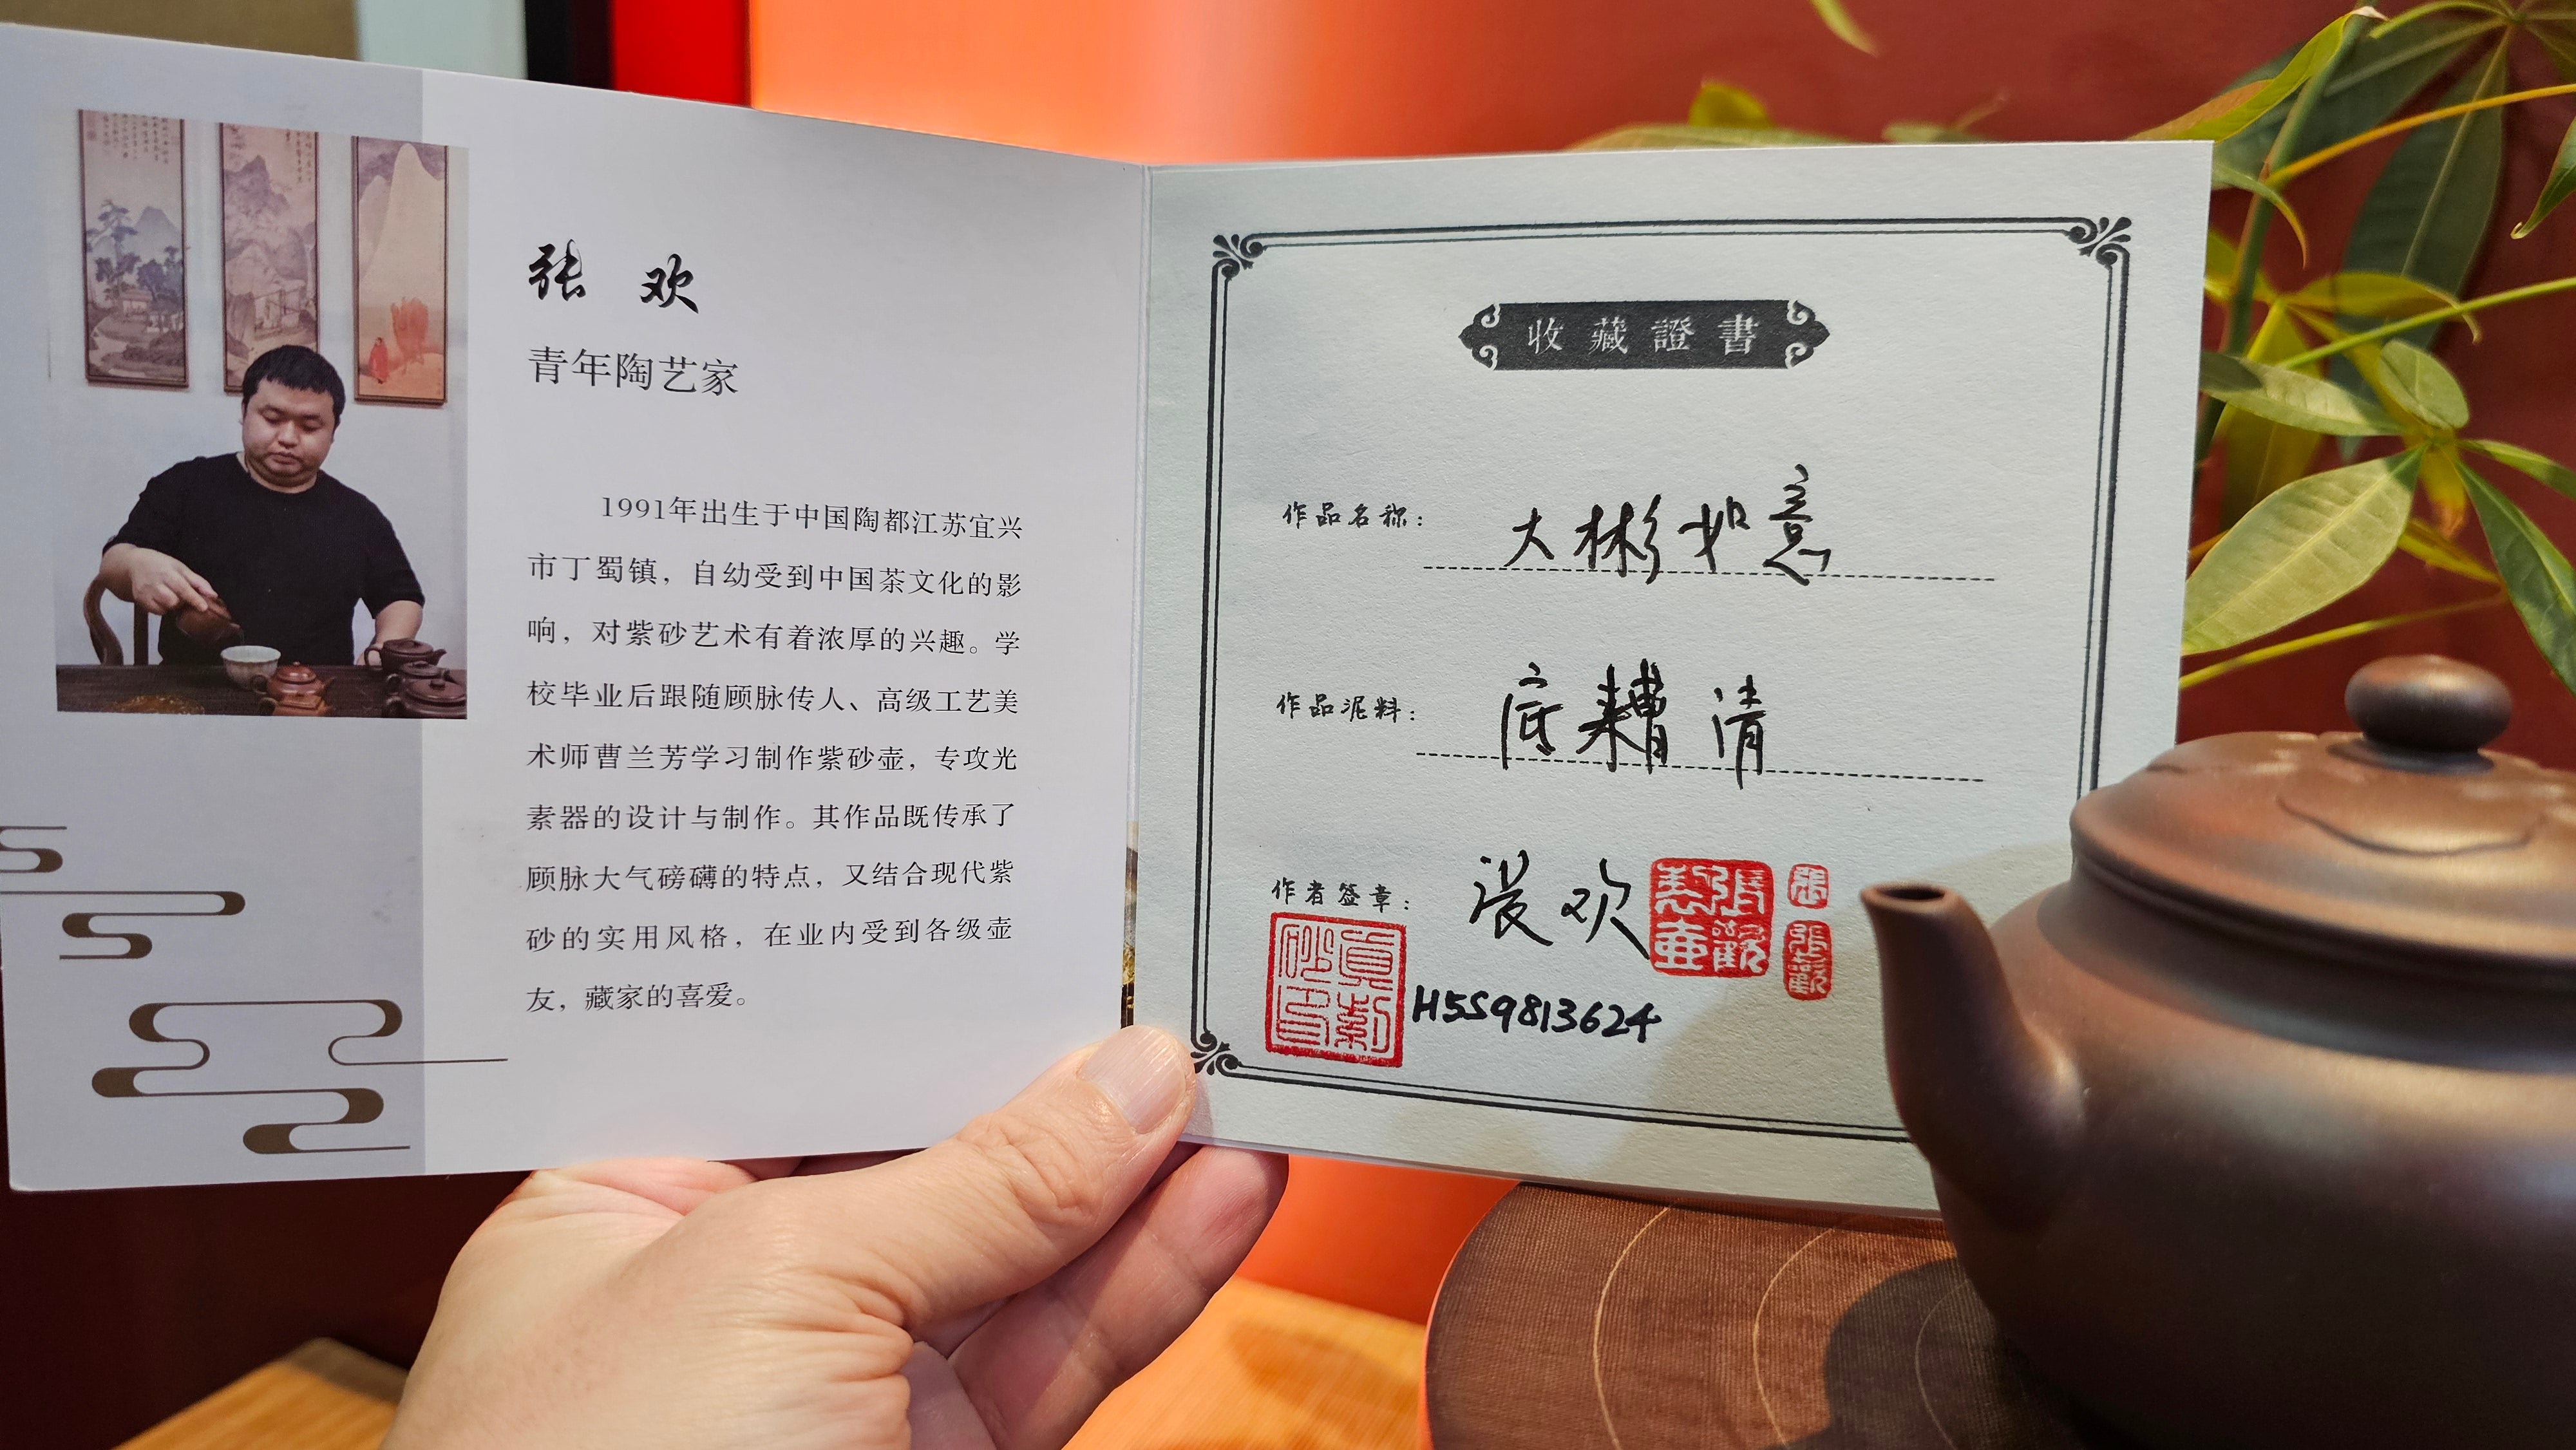 张 欢
青年陶艺家
1991年出生于中国陶都江苏宜兴
市丁蜀镇，自幼受到中国茶文化的影
响，对紫砂艺术有着浓厚的兴趣。学
校毕业后跟随顾脉传人、高级工艺美
术师曹兰芳学习制作紫砂壶，专攻光
素器的设计与制作。其作品既传承了
顾脉大气磅礴的特点，又结合现代紫
砂的实用风格，在业内受到各级壶
友，藏家的喜爱。
收藏證書
作品名称：大彬如意
作品泥料：底糟清
作者签章：张欢
H5S9813624